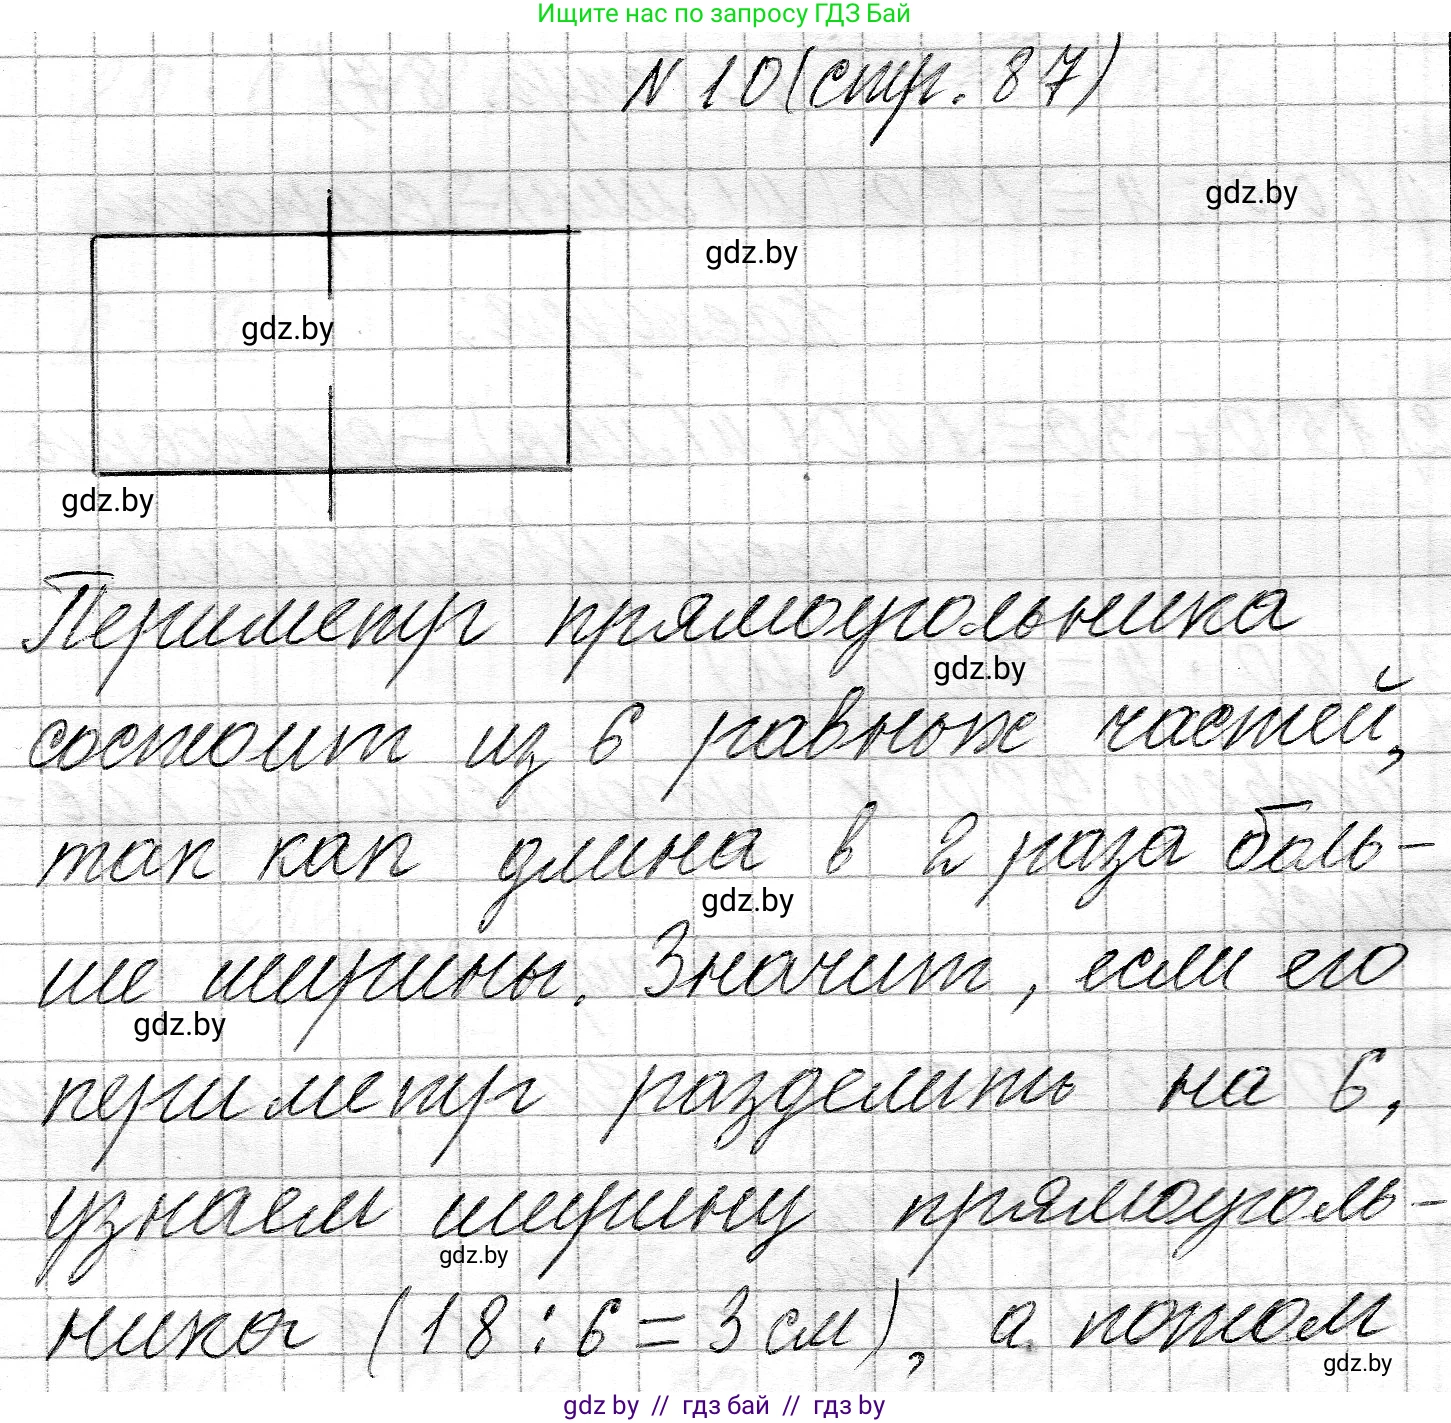 Ищите нас по запросу ГДЗ Бай
N 10 (стр. 87)
gdz.by
gdz.by
gdz.by
gdz.by
Периметр прямоугольника
gdz.by
состоит из 6 равных частей,
так как длина в 2 раза боль-
gdz.by
ше ширины. Значит, если его
gdz.by
периметр разделить на 6,
узнаем ширину прямоуголь-
gdz.by
ника (18 : 6 = 3 см), а потом
gdz.by
gdz by // гдз бай // гдз by